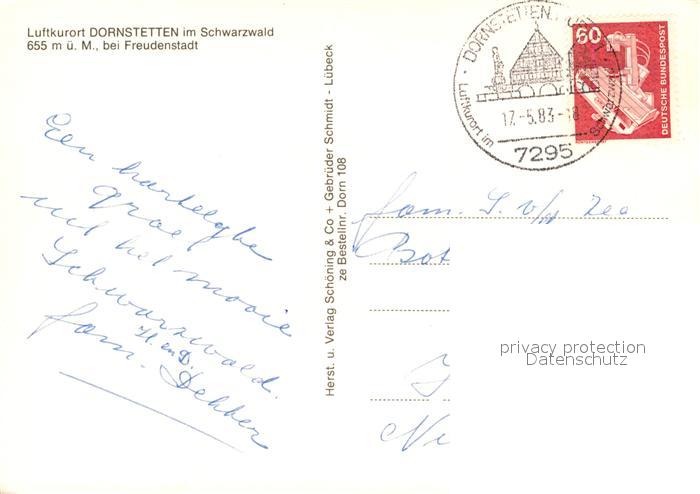 Luftkurort DORNSTETTEN im Schwarzwald
655 m ü. M., bei Freudenstadt
DORNSTETTEN
Luftkurort im Schwarzwald
17.-5.83-18
7295
60
DEUTSCHE BUNDESPOST
Een hartelijke
groet
uit het mooie
Schwarzwald.
H. en D.
fam. Dekker
Herst. u. Verlag Schöning & Co + Gebrüder Schmidt - Lübeck
ze Bestellnr. Dorn 108
fam. S. v/d Zee
Bot
Ni
privacy protection
Datenschutz